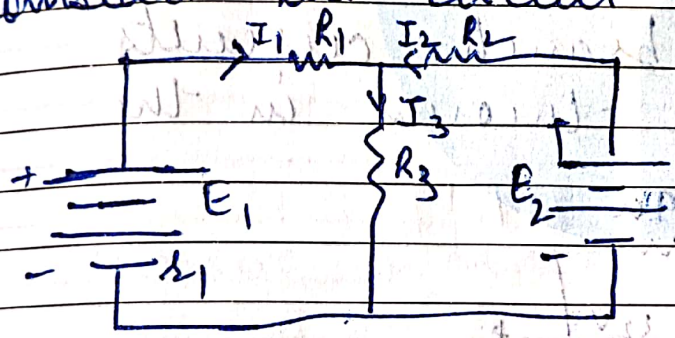 I₁ R₁ I₂ R₂
I₃
R₃
+ E₁ E₂
- r₁ -